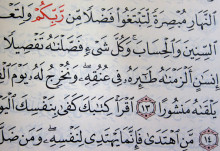 النَّهَارِ مُبْصِرَةً لِّتَبْتَغُوا۟ فَضْلًا مِّن رَّبِّكُمْ وَلِتَعْلَ
السِّنِينَ وَالْحِسَابَ ۚ وَكُلَّ شَىْءٍ فَصَّلْنَٰهُ تَفْصِيلًا
إِنسَٰنٍ أَلْزَمْنَٰهُ طَٰٓئِرَهُۥ فِى عُنُقِهِۦ ۖ وَنُخْرِجُ لَهُۥ يَوْمَ الْقِ
يَلْقَىٰهُ مَنشُورًا ١٣ اقْرَأْ كِتَٰبَكَ كَفَىٰ بِنَفْسِكَ الْيَوْ
١٤ مَّنِ اهْتَدَىٰ فَإِنَّمَا يَهْتَدِى لِنَفْسِهِۦ ۖ وَمَن ضَلَّ